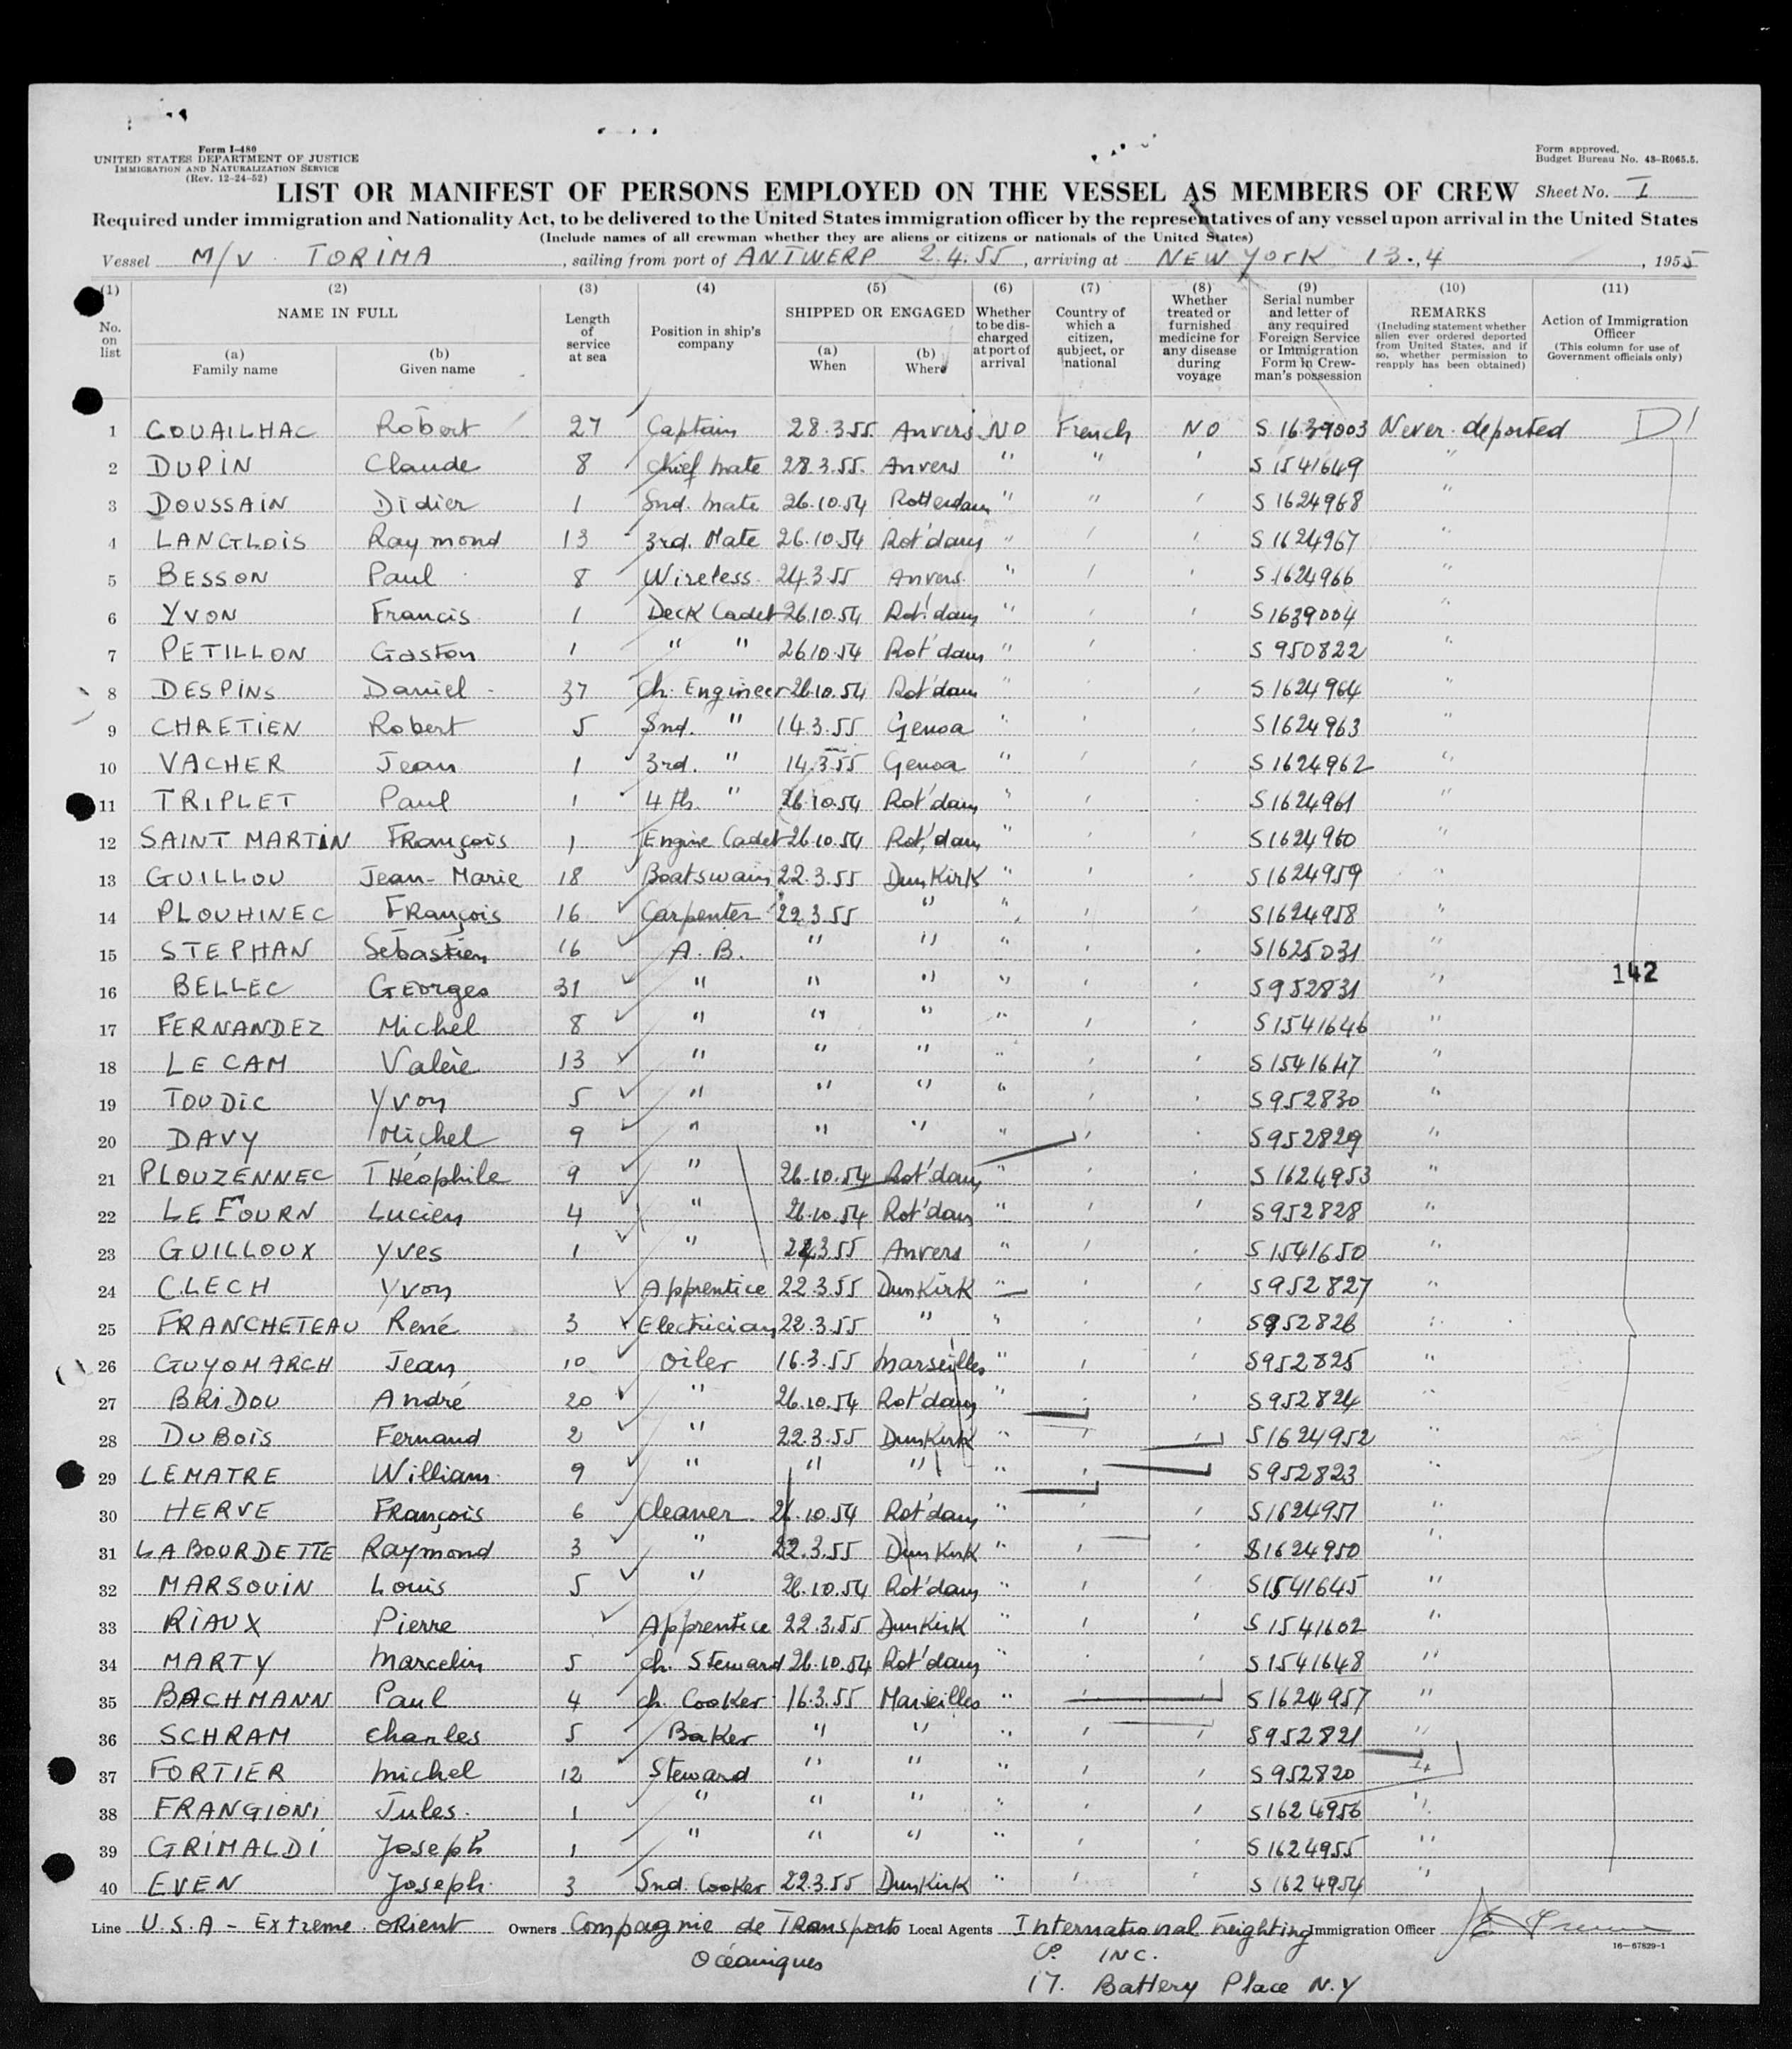 Form I-480
UNITED STATES DEPARTMENT OF JUSTICE
IMMIGRATION AND NATURALIZATION SERVICE
(Rev. 12-24-52)
Form approved.
Budget Bureau No. 43-R065.5.
LIST OR MANIFEST OF PERSONS EMPLOYED ON THE VESSEL AS MEMBERS OF CREW Sheet No. I
Required under immigration and Nationality Act, to be delivered to the United States immigration officer by the representatives of any vessel upon arrival in the United States
(Include names of all crewman whether they are aliens or citizens or nationals of the United States)
Vessel M/V TORIMA, sailing from port of ANTWERP 2.4.55, arriving at NEW YORK 13.4, 1955
(1) No. on list
(2) NAME IN FULL (a) Family name (b) Given name
(3) Length of service at sea
(4) Position in ship's company
(5) SHIPPED OR ENGAGED (a) When (b) Where
(6) Whether to be discharged at port of arrival
(7) Country of which a citizen, subject, or national
(8) Whether treated or furnished medicine for any disease during voyage
(9) Serial number and letter of any required Foreign Service or Immigration Form in Crewman's possession
(10) REMARKS (Including statement whether alien ever ordered deported from United States, and if so, whether permission to reapply has been obtained)
(11) Action of Immigration Officer (This column for use of Government officials only)
1 COUAILHAC Robert 27 Captain 28.3.55. Anvers NO French NO S 1639003 Never deported
2 DUPIN Claude 8 Chief mate 28.3.55. Anvers " " " S 1541649 "
3 DOUSSAIN Didier 1 Snd. mate 26.10.54 Rotterdam " " " S 1624968 "
4 LANGLOIS Raymond 13 3rd. Mate 26.10.54 Rot'dam " " " S 1624967 "
5 BESSON Paul 8 Wireless 24.3.55 Anvers " " " S 1624966 "
6 YVON Francis 1 Deck Cadet 26.10.54 Rot'dam " " " S 1639004 "
7 PETILLON Gaston 1 " " 26.10.54 Rot'dam " " " S 950822 "
8 DESPINS Daniel 37 Ch. Engineer 26.10.54 Rot'dam " " " S 1624964 "
9 CHRETIEN Robert 5 Snd. " 14.3.55 Genoa " " " S 1624963 "
10 VACHER Jean 1 3rd. " 14.3.55 Genoa " " " S 1624962 "
11 TRIPLET Paul 1 4th. " 26.10.54 Rot'dam " " " S 1624961 "
12 SAINT MARTIN François 1 Engine Cadet 26.10.54 Rot'dam " " " S 1624960 "
13 GUILLOU Jean-Marie 18 Boatswain 22.3.55 Dunkirk " " " S 1624959 "
14 PLOUHINEC François 16 Carpenter 22.3.55 " " " " S 1624958 "
15 STEPHAN Sébastien 16 A.B. " " " " " S 1625031 "
16 BELLEC Georges 31 " " " " " " S 952831 " 142
17 FERNANDEZ Michel 8 " " " " " " S 1541646 "
18 LE CAM Valère 13 " " " " " " S 1541647 "
19 TOUDIC Yvon 5 " " " " " " S 952830 "
20 DAVY Michel 9 " " " " " " S 952829 "
21 PLOUZENNEC THéophile 9 " 26.10.54 Rot'dam " " " S 1624953 "
22 LE FOURN Lucien 4 " 26.10.54 Rot'dam " " " S 952828 "
23 GUILLOUX Yves 1 " 24.3.55 Anvers " " " S 1541650 "
24 CLECH Yvon Apprentice 22.3.55 Dunkirk " " " S 952827 "
25 FRANCHETEAU René 3 Electrician 22.3.55 " " " " S 952826 "
26 GUYOMARCH Jean 10 Oiler 16.3.55 Marseilles " " " S 952825 "
27 BRIDOU André 20 " 26.10.54 Rot'dam " " " S 952824 "
28 DUBOIS Fernand 2 " 22.3.55 Dunkirk " " " S 1624952 "
29 LEMATRE William 9 " " " " " " S 952823 "
30 HERVE François 6 Cleaner 26.10.54 Rot'dam " " " S 1624951 "
31 LABOURDETTE Raymond 3 " 22.3.55 Dunkirk " " " S 1624950 "
32 MARSOUIN Louis 5 " 26.10.54 Rot'dam " " " S 1541645 "
33 RIAUX Pierre Apprentice 22.3.55 Dunkirk " " " S 1541602 "
34 MARTY Marcelin 5 ch. Steward 26.10.54 Rot'dam " " " S 1541648 "
35 BACHMANN Paul 4 ch. Cooker 16.3.55 Marseilles " " " S 1624957 "
36 SCHRAM Charles 5 Baker " " " " " S 952821 "
37 FORTIER Michel 12 Steward " " " " " S 952820 "
38 FRANGIONI Jules 1 " " " " " " S 1624956 "
39 GRIMALDI Joseph 1 " " " " " " S 1624955 "
40 EVEN Joseph 3 Snd. Cooker 22.3.55 Dunkirk " " " S 1624954 "
Line U.S.A - Extreme Orient Owners Compagnie de Transports Océaniques Local Agents International Freighting Co. INC. 17. Battery Place N.Y Immigration Officer
16-67829-1